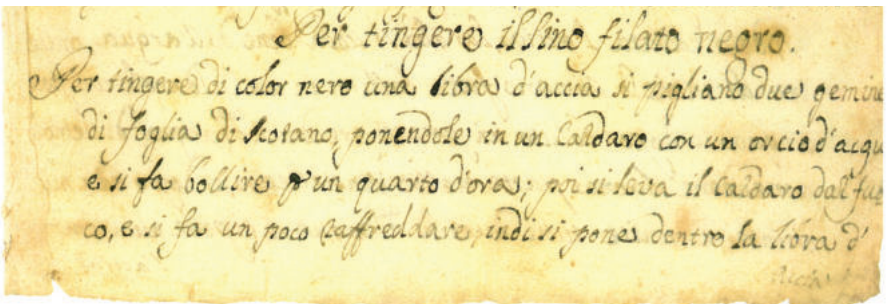 Per tingere il lino filato negro.
Per tingere di color nero una libra d'accia si pigliano due gemine
di foglia di scotano, ponendole in un Caldaro con un orcio d'acqu
e si fa bollire p un quarto d'ora; poi si leva il Caldaro dal fuo
co, e si fa un poco raffreddare, indi si pone dentro la libra d'